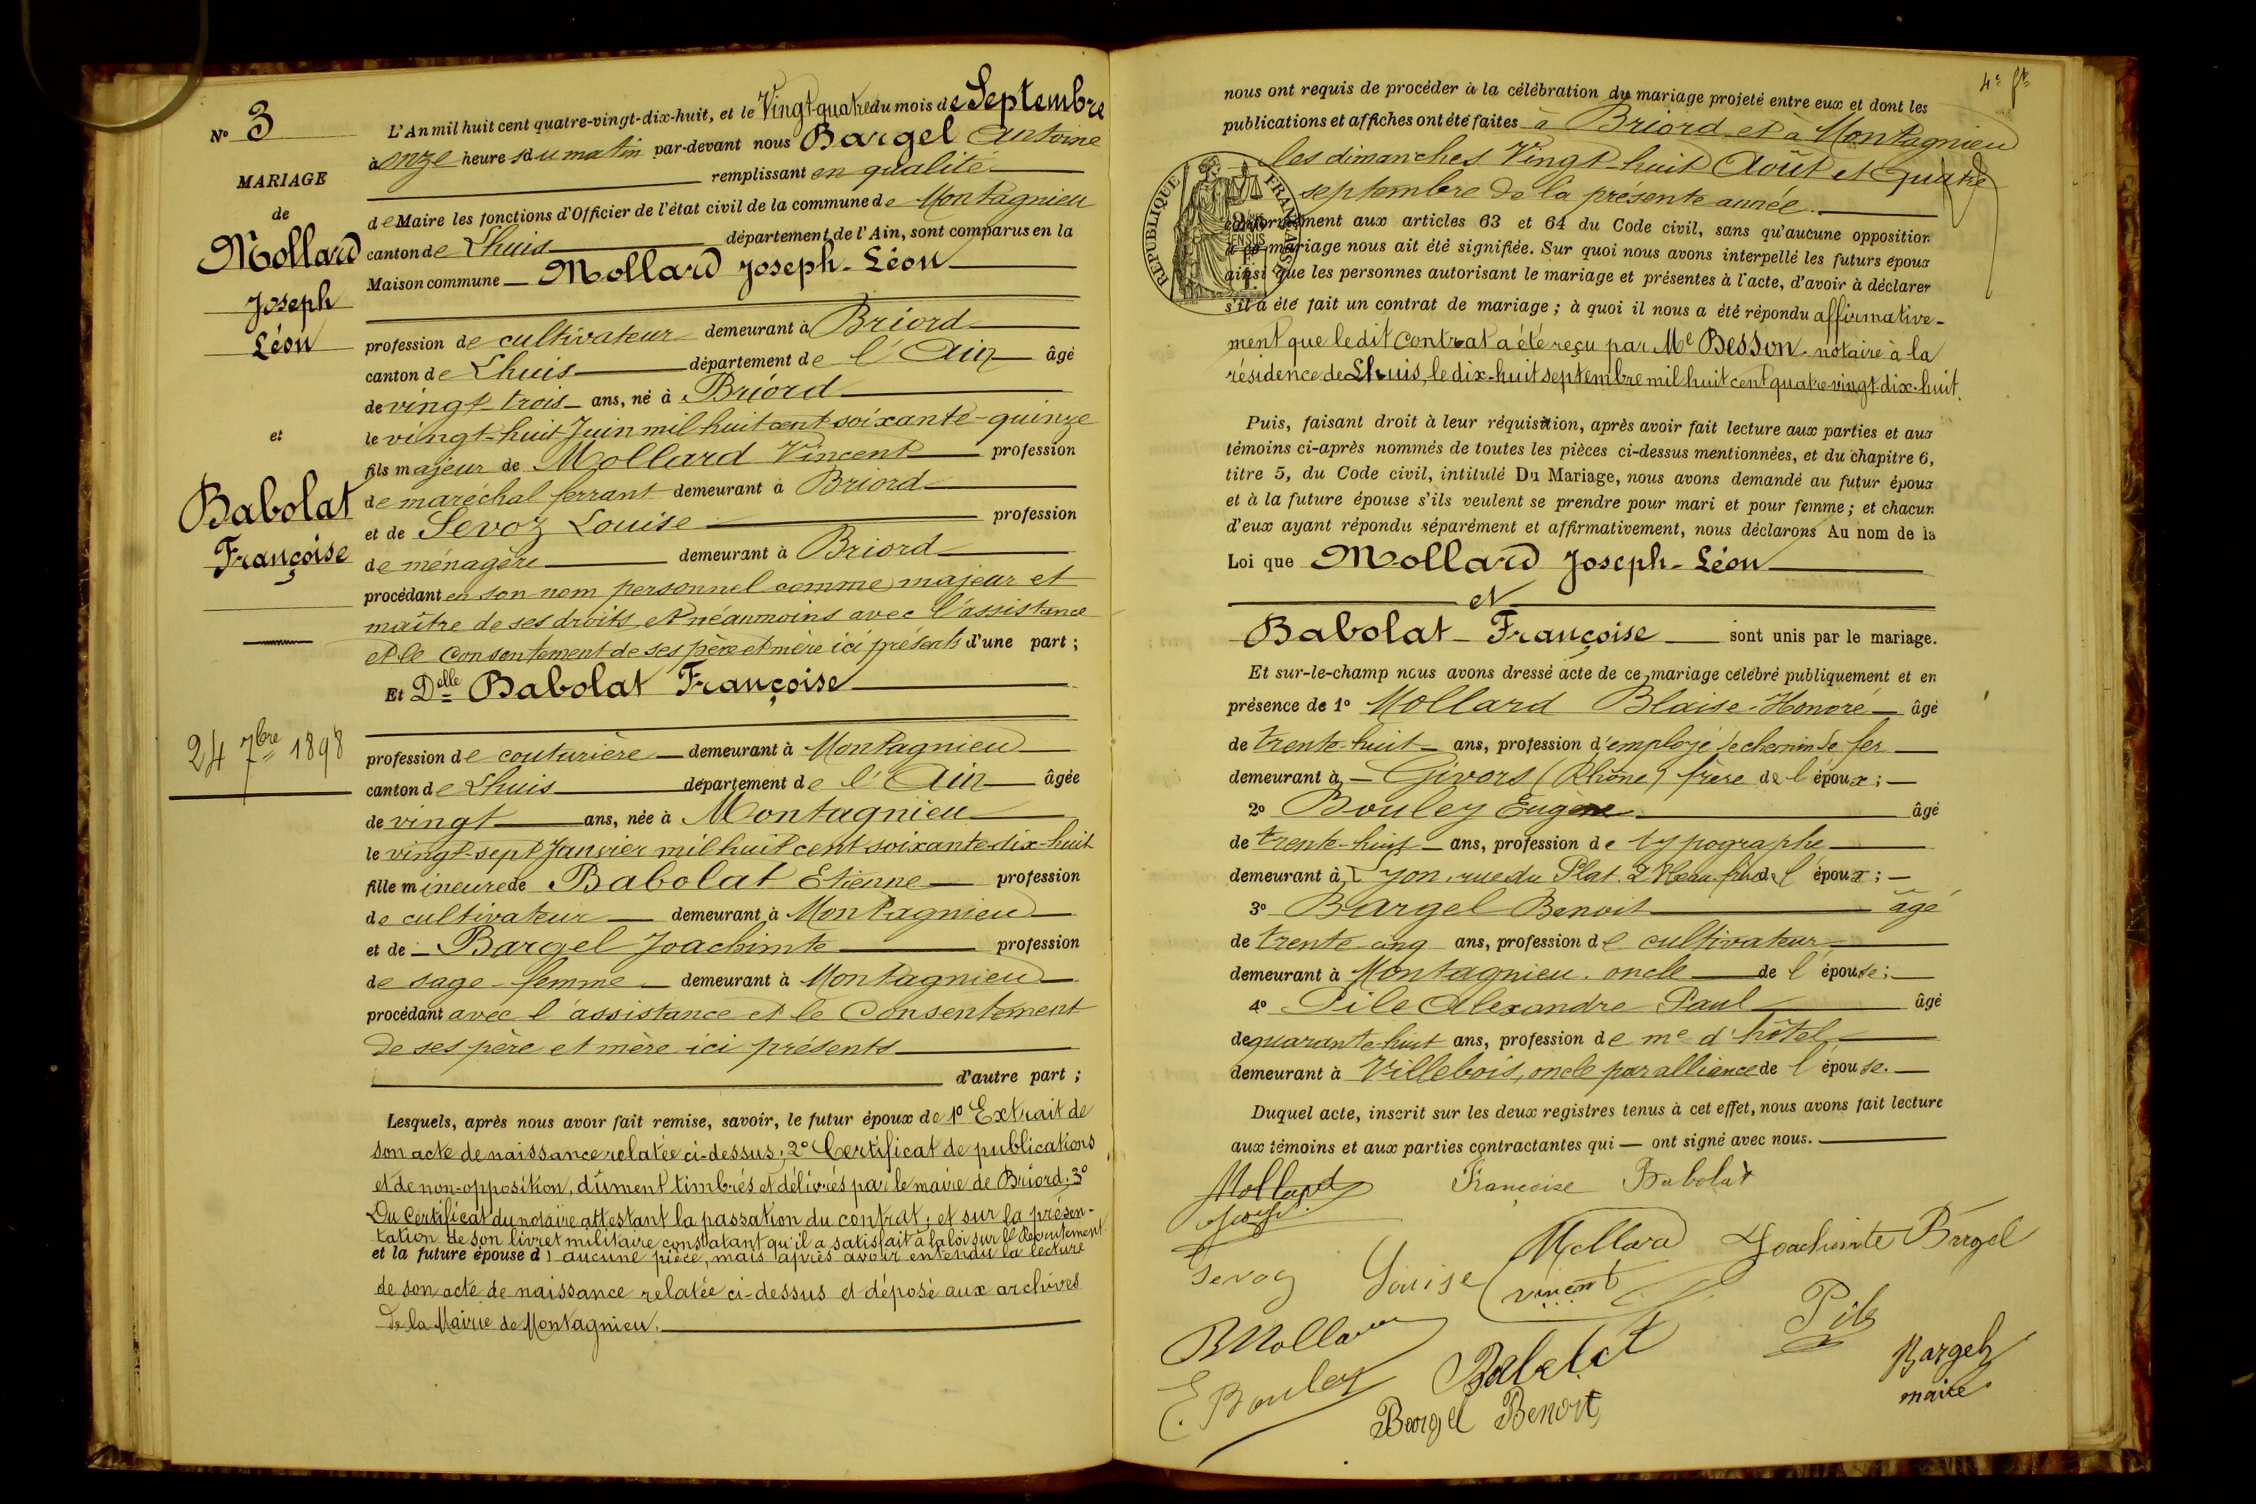 N° 3
MARIAGE
de
Mollard
Joseph
Léon
et
Babolat
Françoise
24 7bre 1898
L'An mil huit cent quatre-vingt-dix-huit, et le Vingt-quatre du mois de Septembre
à onze heures du matin par-devant nous Bargel Antoine
remplissant en qualité
de Maire les fonctions d'Officier de l'état civil de la commune de Montagnieu
canton de Lhuis département de l'Ain, sont comparus en la
Maison commune Mollard Joseph-Léon
profession de cultivateur demeurant à Briord
canton de Lhuis département de l'Ain âgé
de vingt-trois ans, né à Briord
le vingt-huit Juin mil huit cent soixante-quinze
fils majeur de Mollard Vincent profession
de maréchal ferrant demeurant à Briord
et de Sevoz Louise profession
de ménagère demeurant à Briord
procédant en son nom personnel comme majeur et
maître de ses droits et néanmoins avec l'assistance
et le consentement de ses père et mère ici présents d'une part ;
Et Delle Babolat Françoise
profession de couturière demeurant à Montagnieu
canton de Lhuis département de l'Ain âgée
de vingt ans, née à Montagnieu
le vingt-sept Janvier mil huit cent soixante-dix-huit
fille mineure de Babolat Etienne profession
de cultivateur demeurant à Montagnieu
et de Bargel Joachimte profession
de sage-femme demeurant à Montagnieu
procédant avec l'assistance et le Consentement
de ses père et mère ici présents
d'autre part ;
Lesquels, après nous avoir fait remise, savoir, le futur époux de 1° Extrait de
son acte de naissance relatée ci-dessus ; 2° Certificat de publications
et de non-opposition, dûment timbrés et délivrés par le maire de Briord ; 3°
Du Certificat du notaire attestant la passation du contrat ; et sur la présen-
tation de son livret militaire constatant qu'il a satisfait à la loi sur le Recrutement
et la future épouse d'aucune pièce, mais après avoir entendu la lecture
de son acte de naissance relatée ci-dessus et déposé aux archives
de la Mairie de Montagnieu.
nous ont requis de procéder à la célébration du mariage projeté entre eux et dont les
publications et affiches ont été faites à Briord et à Montagnieu
les dimanches Vingt-huit Août et Quatre
septembre de la présente année.
RÉPUBLIQUE FRANÇAISE
conformément aux articles 63 et 64 du Code civil, sans qu'aucune opposition
à ce mariage nous ait été signifiée. Sur quoi nous avons interpellé les futurs époux
ainsi que les personnes autorisant le mariage et présentes à l'acte, d'avoir à déclarer
s'il a été fait un contrat de mariage ; à quoi il nous a été répondu affirmative-
ment que ledit contrat a été reçu par Me Besson notaire à la
résidence de Lhuis, le dix-huit septembre mil huit cent quatre vingt dix-huit.
Puis, faisant droit à leur réquisition, après avoir fait lecture aux parties et aux
témoins ci-après nommés de toutes les pièces ci-dessus mentionnées, et du chapitre 6,
titre 5, du Code civil, intitulé Du Mariage, nous avons demandé au futur époux
et à la future épouse s'ils veulent se prendre pour mari et pour femme ; et chacun
d'eux ayant répondu séparément et affirmativement, nous déclarons Au nom de la
Loi que Mollard Joseph-Léon
et
Babolat Françoise sont unis par le mariage.
Et sur-le-champ nous avons dressé acte de ce mariage célébré publiquement et en
présence de 1° Mollard Blaise-Honoré âgé
de trente-huit ans, profession d'employé de chemin de fer
demeurant à Givors (Rhône) frère de l'époux ;
2° Bouley Eugène âgé
de trente-huit ans, profession de typographe
demeurant à Lyon, rue du Plat. 2 de l'époux ;
3° Bargel Benoit âgé
de trente cinq ans, profession de cultivateur
demeurant à Montagnieu. oncle de l'épouse ;
4° Pile Alexandre Paul âgé
de quarante-huit ans, profession de me d'hôtel
demeurant à Villebois, oncle par alliance de l'épouse.
Duquel acte, inscrit sur les deux registres tenus à cet effet, nous avons fait lecture
aux témoins et aux parties contractantes qui ont signé avec nous.
Mollard Françoise Babolat
Joseph
Sevoz Louise Mollard Joachimte Bargel
Vincent
BMollard Pile
E. Bouley Babolat Bargel
maire
Bargel Benoit